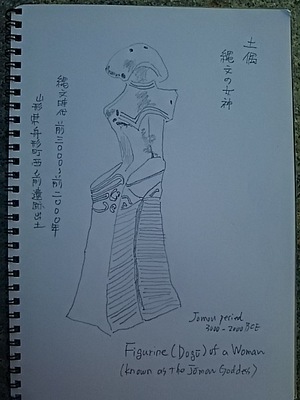 土偶
縄文の女神
縄文時代 前三〇〇〇〜前二〇〇〇年
山形県舟形町西ノ前遺跡出土
Jomon period
3000-2000 BCE
Figurine (Dogū) of a Woman
(known as the Jōmon Goddess)